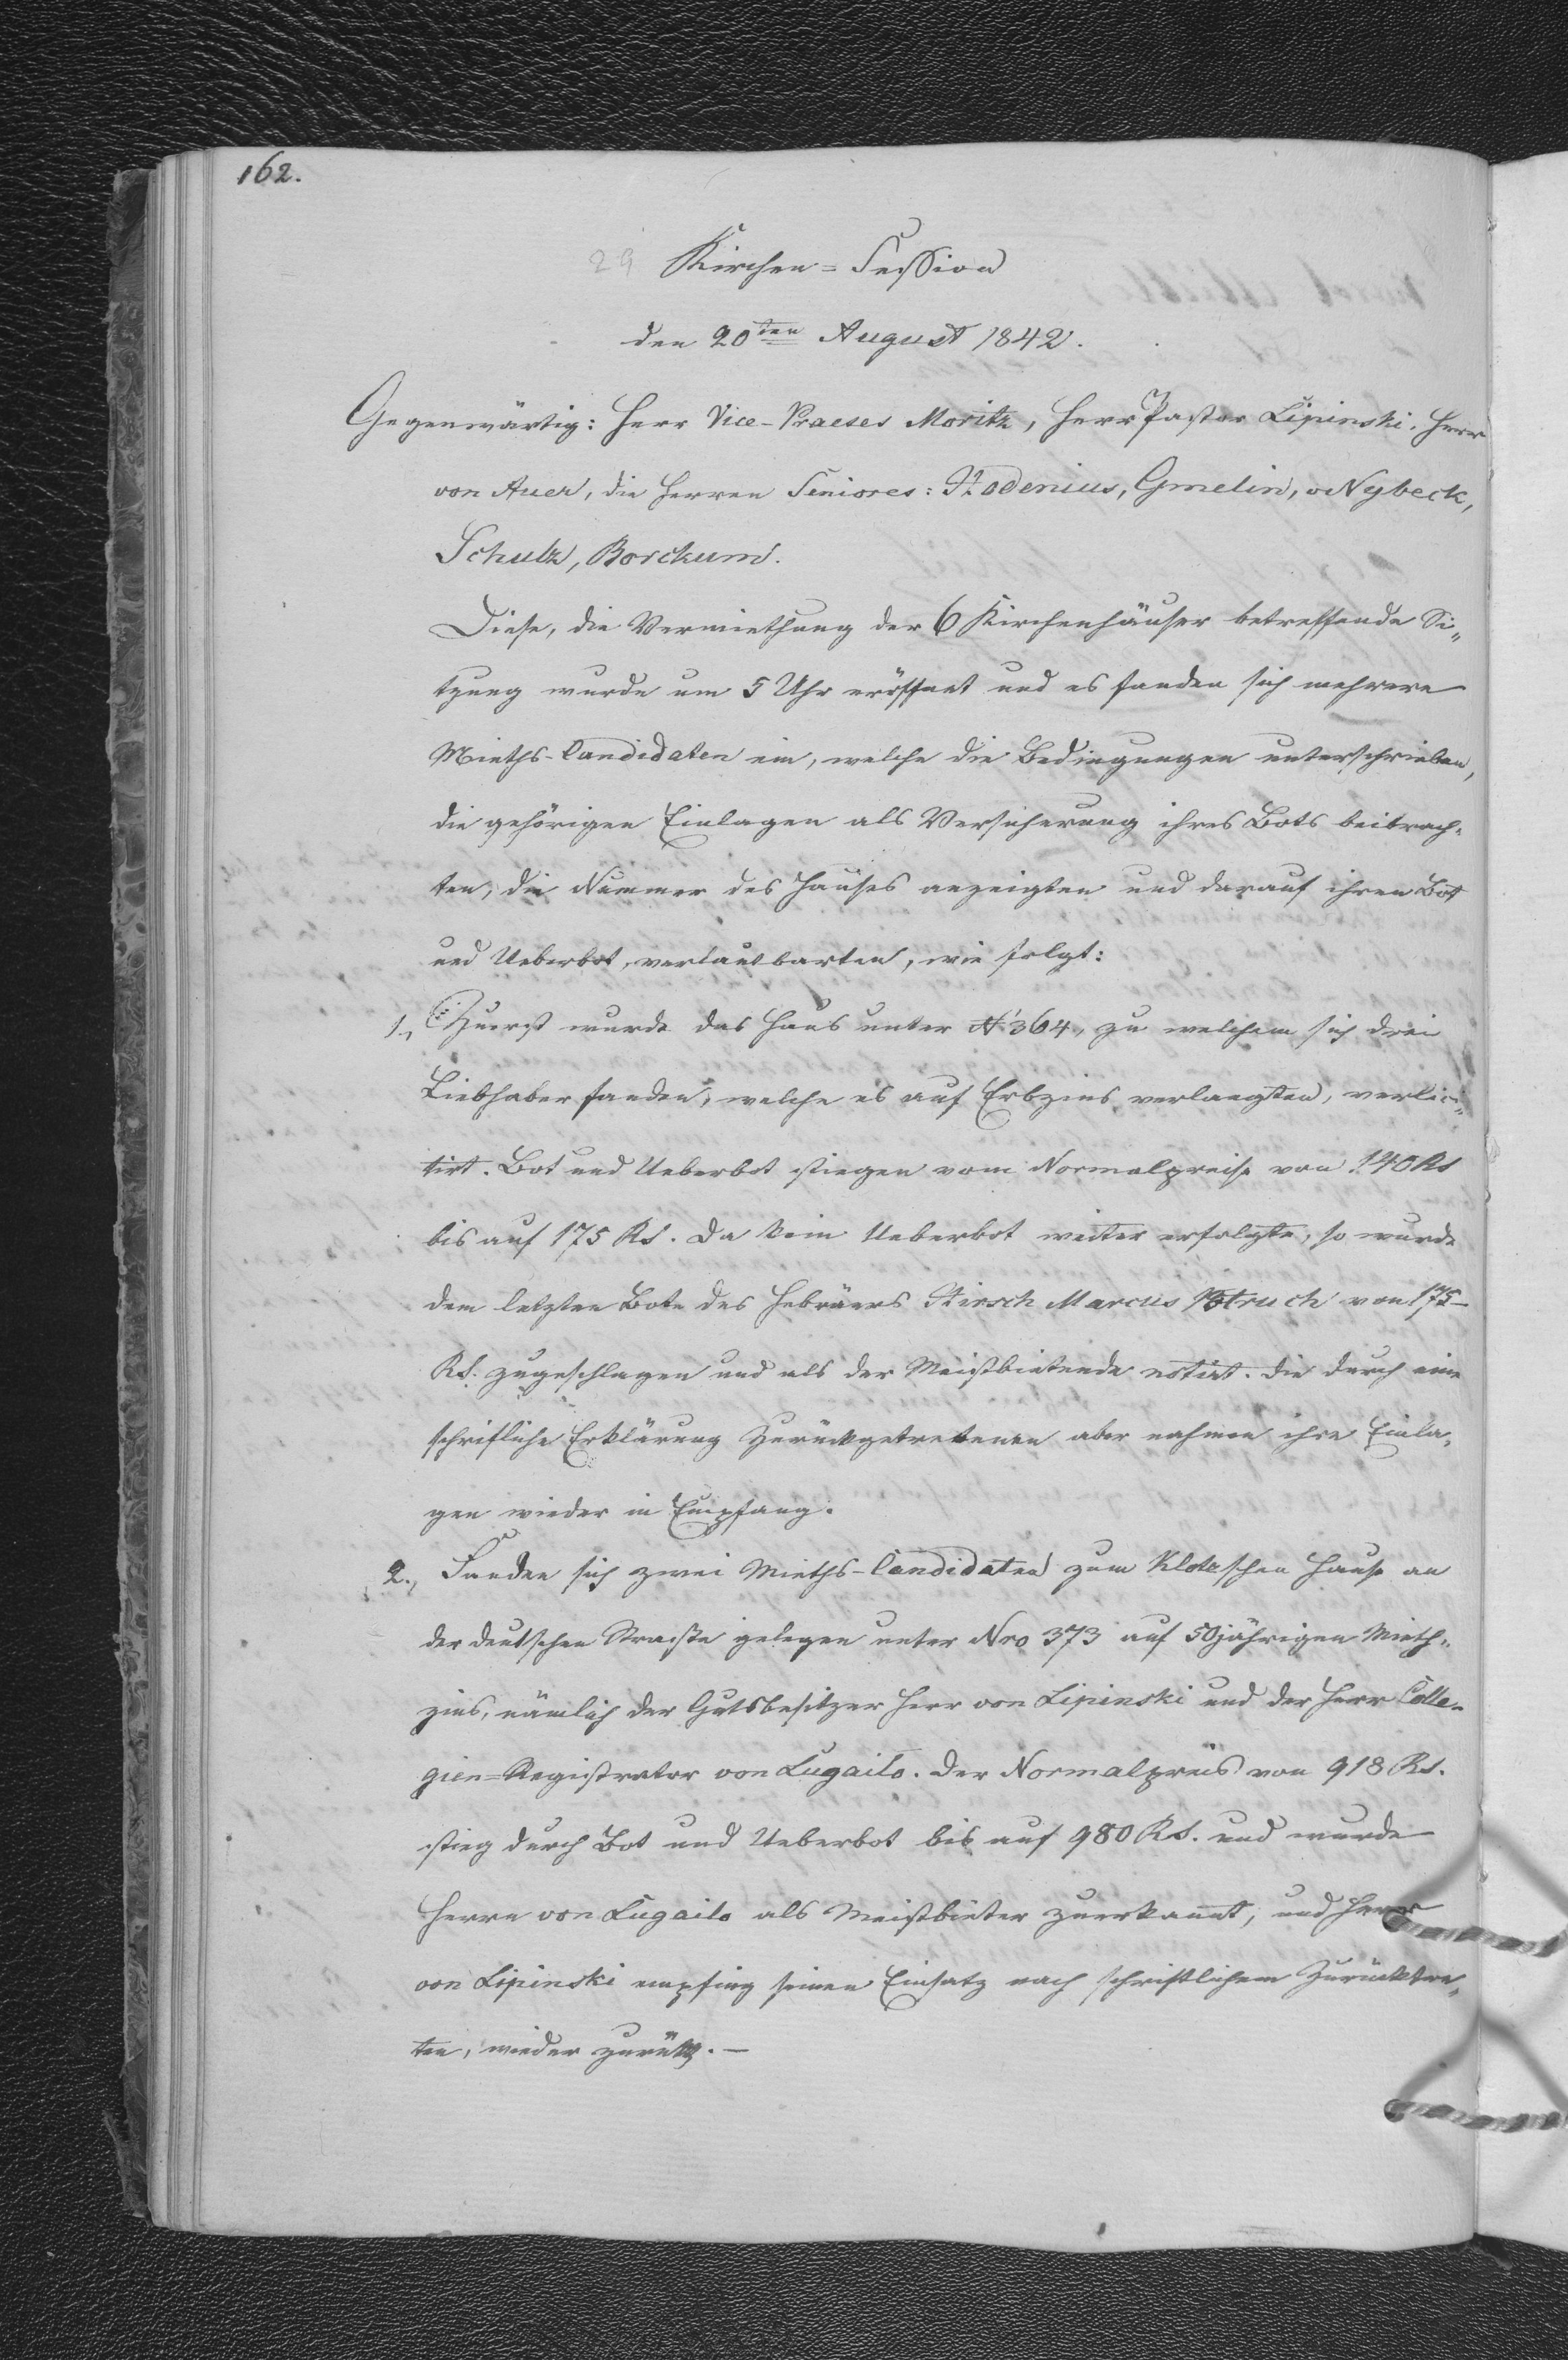 162.
29 Kirchen=Session
den 20ten August 1842.
Gegenwärtig: Herr Vice-Praeses Moritz, Herr Pastor Lipinski, Herr
von Auer, die Herren Seniores: Hodenius, Gmelin, v Nybeck,
Schulz, Borckum.
Diese, die Vermiethung der 6 Kirchenhäuser betreffende Si„
tzung wurde um 5 Uhr eröffnet und es fanden sich mehrere
Mieths-Candidaten ein, welche die Bedingungen unterschrieben,
die gehörigen Einlagen als Versicherung ihres Bots beibrach„
ten, die Nummer des Hauses anzeigten und darauf ihren Bot
und Ueberbot, verlautbarten, wie folgt:
1., Zuerst wurde das Haus unter N 364, zu welchem sich drei
Liebhaber fanden, welche es auf Erbzins verlangten, verlici„
tirt. Bot und Ueberbot stiegen vom Normalpreise von 140 RS
bis auf 175 RS. Da kein Ueberbot weiter erfolgte, so wurde
dem letzten Bote des Hebräers Hirsch Marcus Potruch von 175
RS. zugeschlagen und als der Meistbietende notirt. Die durch eine
schriftliche Erklärung Zurückgetretenen aber nahmen ihre Einla„
gen wieder in Empfang.
2., Fanden sich zwei Mieths-Candidaten zum Klotzschen Hause an
der deutschen Strasse gelegen unter Nro 373 auf 50jährigen Mieth„
zins, nämlich der Gutsbesitzer Herr von Lipinski und der Herr Colle„
gien=Registrator von Lugailo. Der Normalpreis von 918 RS.
stieg durch Bot und Ueberbot bis auf 980 RS. und wurde
Herrn von Lugailo als Meistbieter zuerkannt, und Herr
von Lipinski empfing seinen Einsatz nach schriftlichem Zurücktre„
ten, wieder zurück. —